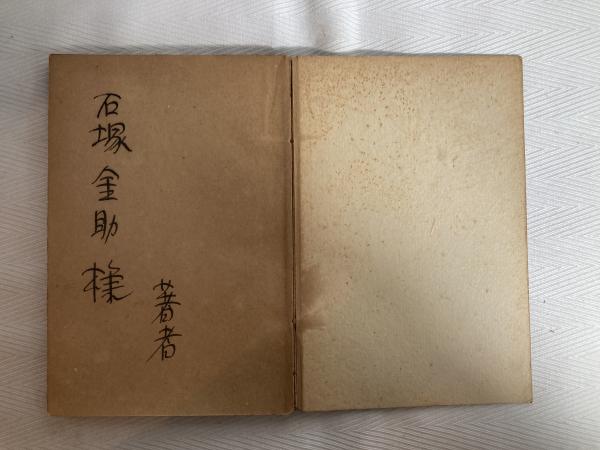 石塚金助様
著者